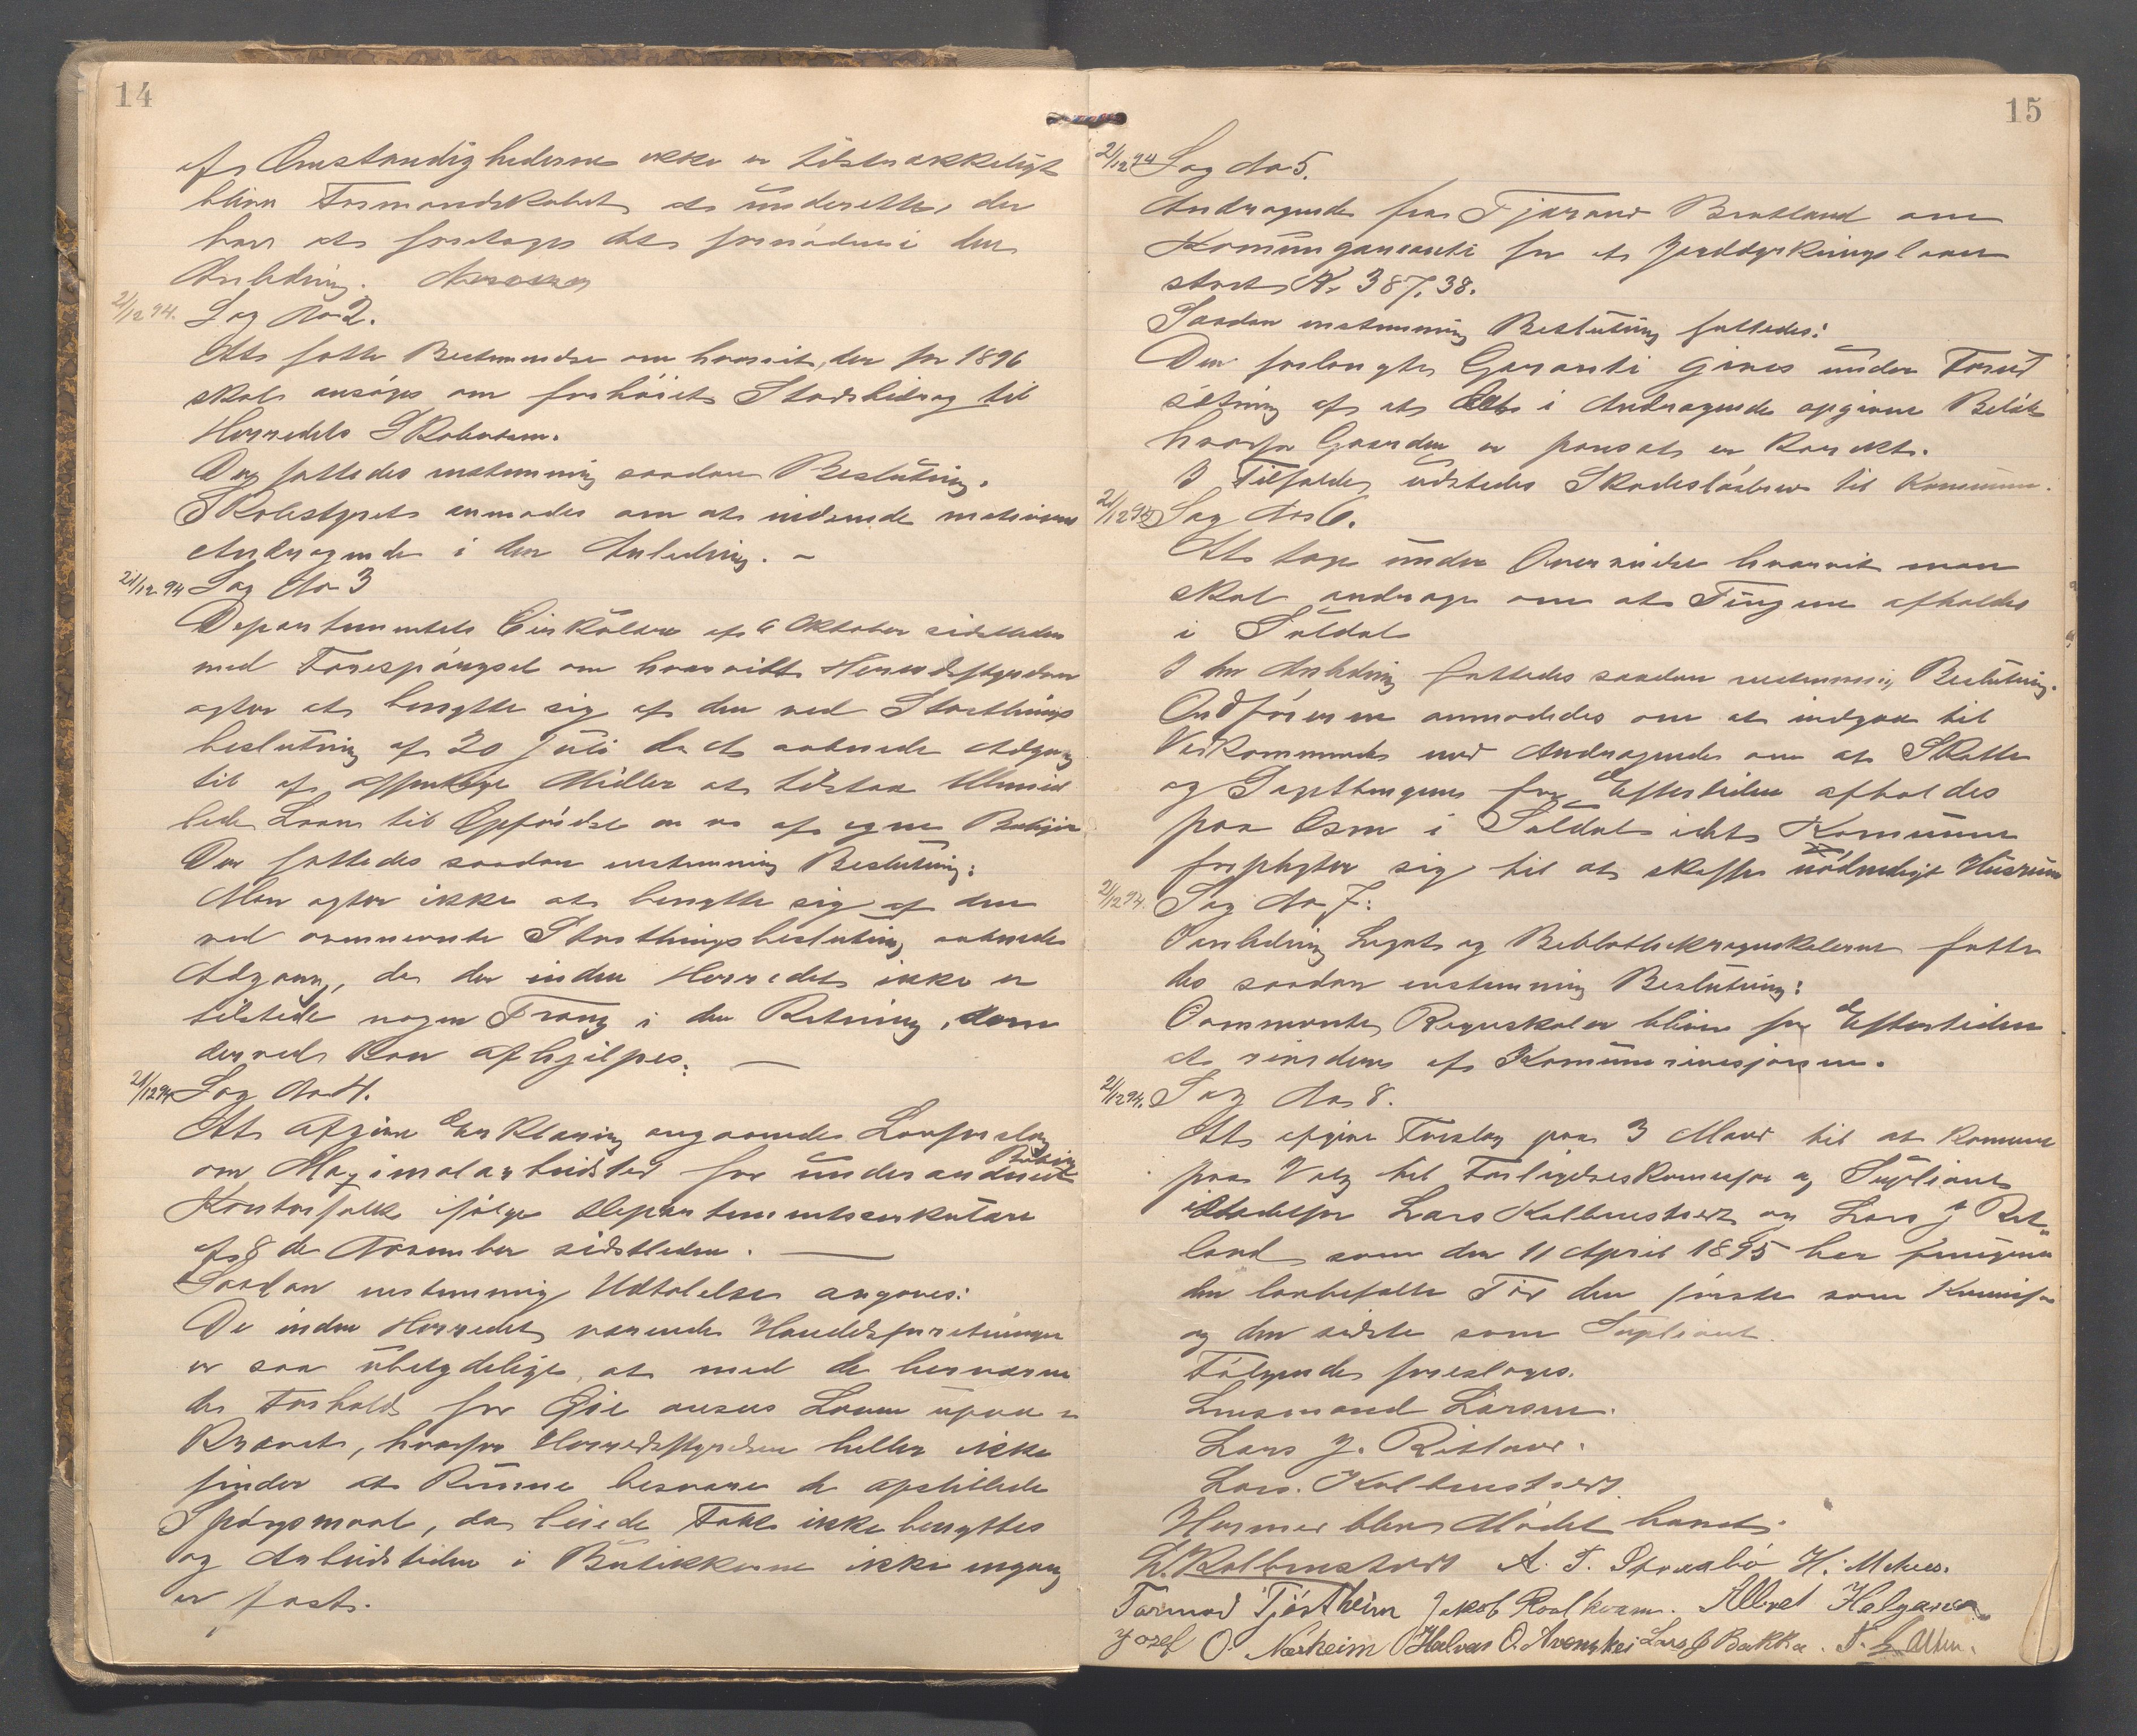 14
af Omstændighederne ikke er tilstrækkeligt
bliver Formandskabet at underette, der
har at foretage det fornødne i den
Anledning.
21/12 94. Sag No 2.
At fatte Bestemmelse om hvorvit, der for 1896
skal ansøges om forhøiet Stadsbidrag til
Herredets Skolevæsen.
Der fattedes enstemmig saadan Beslutning.
Skolestyret anmodes om at indsende motiveret
Andragende i den Anledning. -
21/12 94 Sag No 3
Departementets Cirkulære af 6 Oktober sidstleden
med Forespørgsel om hvorvidt Herredsstyrelsen
agter at benytte sig af den ved Storthings
beslutning af 20 Juli d. A. aabnede Adgang
til af offentlige Midler at tilstaa Ubemid
lede Laan til Opførelse af egne Boliger
Der fattedes saadan enstemmig Beslutning:
Man agter ikke at benytte sig af den
ved ovennevnte Storthingsbeslutning aabnede
Adgang, da der inden Herredet ikke er
tilstede nogen Trang i den Retning, som
derved kan afhjælpes. —
21/12 94 Sag No 4.
At afgive Erklæring angaaende Lovforslag
om Maximalarbeidstid for underordnede Butik
Kontorfolk ifølge Departementscirkulære
af 8 de November sidstleden. —
Saadan enstemmig Udtalelse angaves:
De inden Herredet værende Handelsforretninger
er saa ubetydelige, at med de herværen
de Forhold for Øie ansees Loven upaa=
krævet, hvorfor Herredsstyrelsen heller ikke
finder at kunne besvare de opstillede
Spørgsmaal, da leiede Folk ikke benyttes
og Arbeidstiden i Butikkerne ikke engang
er fast.
15
21/12 94 Sag No 5.
Andragende fra Tjæran Bratland om
Kommungaranti for et Jorddyrkningslaan
stort Kr 387,38.
Saadan enstemmig Beslutning fattedes:
Den forlangte Garanti gives under Forud
sætning af at det i Andragende opgivne Beløb
hvorfor Gaarden er pansat er korrekt.
I Tilfælde udstedes Skadesløsbrev til Kommune.
21/12 94 Sag No 6.
At tage under Overveielse hvorvit man
skal andrage om at Tingene afholdes
i Suldal
I den Anledning fattedes saadan enstemmig Beslutning.
Ordføreren anmodedes om at indgaa til
Vedkommende med Andragende om at Skatte
og Sagthingene for Eftertiden afholdes
paa Osen i Suldal idet Kommunen
forpligter sig til at skaffe nødvendigt Husrum
21/12 94. Sag No 7:
I anledning Legat og Bibliothekregnskaberne fatte
des saadan enstemmig Beslutning:
Ovennevnte Regnskaber bliver for Eftertiden
at revideres af Kommunerevisjonen.
21/12 94. Sag No 8.
At afgive Forslag paa 3 Mænd til at komme
paa Valg til Forligelseskommisær og Supliant
istedetfor Lars Kolbenstvedt og Lars J Ret„
land som den 11 April 1895 har fungeret
den lovbefalte Tid den første som Kommisær
og den sidste som Supliant.
Følgende foresloges.
Lensmand Larsen.
Lars J. Ritland.
Lars. Kolbenstvedt.
Hermed blev Mødet hævet.
L. Kolbenstvedt A. T. Straabø H. Mehus.
Tormod Tjøstheim Jakob Roalkvam. Albret Helganes
Josef O Nærheim Halvor O. Lars J Bakka. T.